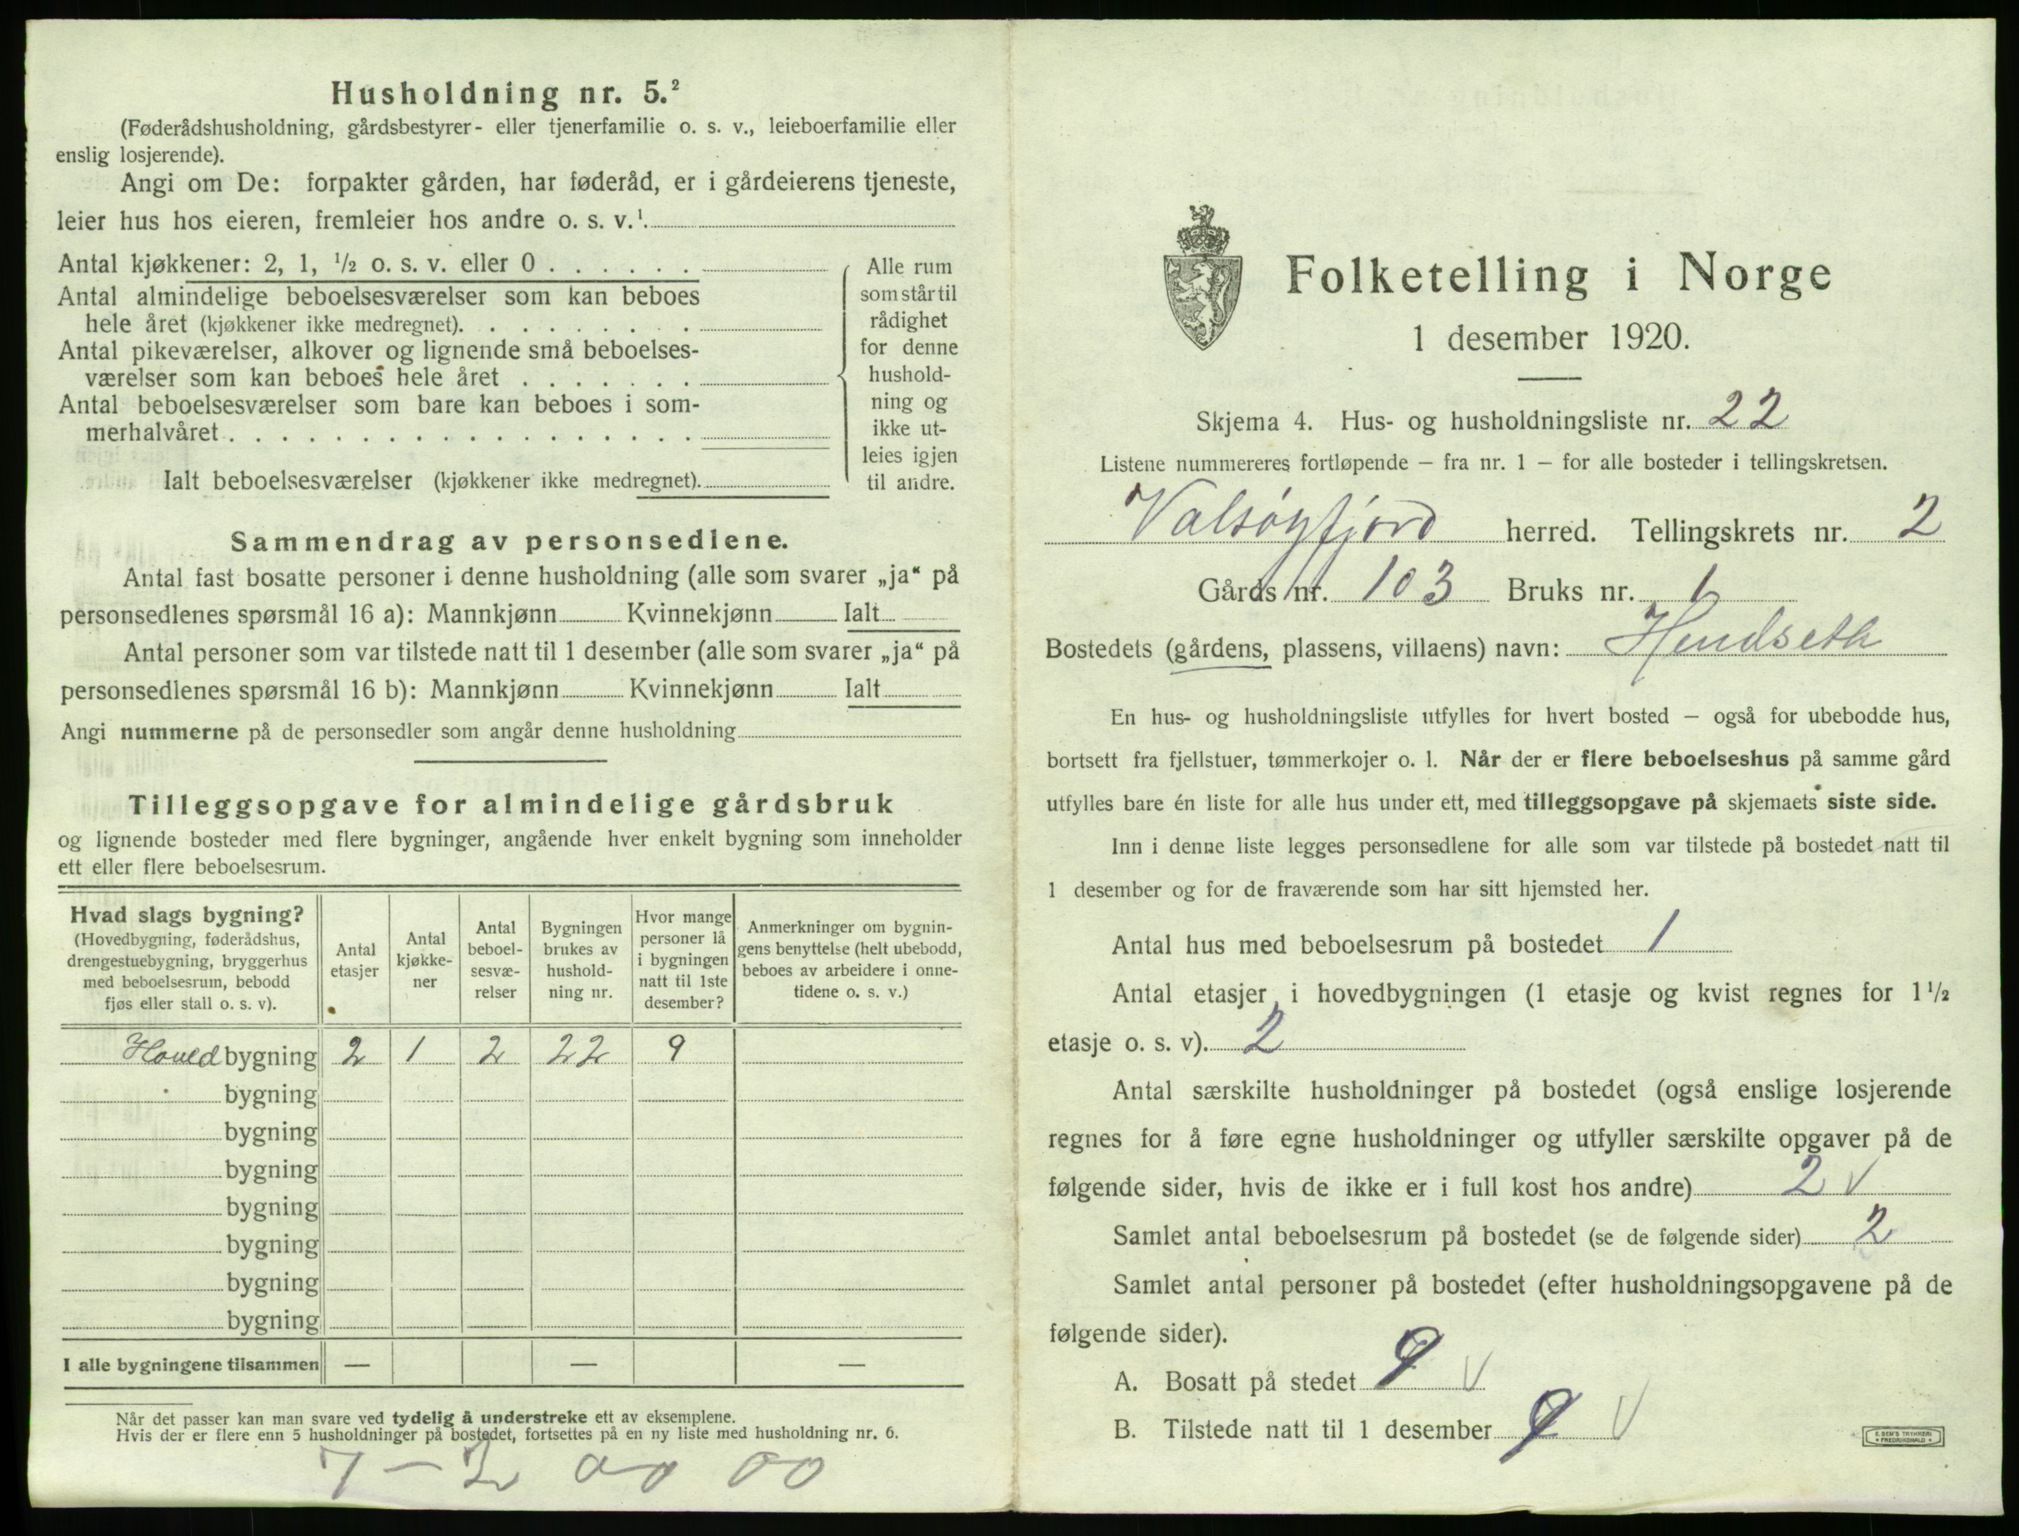 Husholdning nr. 5.²
(Føderådshusholdning, gårdsbestyrer- eller tjenerfamilie o. s. v., leieboerfamilie eller
enslig losjerende).
Angi om De: forpakter gården, har føderåd, er i gårdeierens tjeneste,
leier hus hos eieren, fremleier hos andre o. s. v.¹
Antal kjøkkener: 2, 1, ½ o. s. v. eller 0
Antal almindelige beboelsesværelser som kan beboes
hele året (kjøkkener ikke medregnet)
Antal pikeværelser, alkover og lignende små beboelses-
værelser som kan beboes hele året
Antal beboelsesværelser som bare kan beboes i som-
merhalvåret
Ialt beboelsesværelser (kjøkkener ikke medregnet)
Alle rum
som står til
rådighet
for denne
hushold-
ning og
ikke ut-
leies igjen
til andre.
Sammendrag av personsedlene.
Antal fast bosatte personer i denne husholdning (alle som svarer „ja“ på
personsedlenes spørsmål 16 a): Mannkjønn Kvinnekjønn Ialt
Antal personer som var tilstede natt til 1 desember (alle som svarer „ja“ på
personsedlenes spørsmål 16 b): Mannkjønn Kvinnekjønn Ialt
Angi nummerne på de personsedler som angår denne husholdning
Tilleggsopgave for almindelige gårdsbruk
og lignende bosteder med flere bygninger, angående hver enkelt bygning som inneholder
ett eller flere beboelsesrum.
Hvad slags bygning?
(Hovedbygning, føderådshus,
drengestuebygning, bryggerhus
med beboelsesrum, bebodd
fjøs eller stall o. s. v).
Antal
etasjer
Antal
kjøkke-
ner
Antal
beboel-
sesvæ-
relser
Bygningen
brukes av
hushold-
ning nr.
Hvor mange
personer lå
i bygningen
natt til 1ste
desember?
Anmerkninger om bygnin-
gens benyttelse (helt ubebodd,
beboes av arbeidere i onne-
tidene o. s. v.)
Hoved bygning 2 1 2 22 9
bygning
bygning
bygning
bygning
bygning
bygning
bygning
I alle bygningene tilsammen — — —
Når det passer kan man svare ved tydelig å understreke ett av eksemplene.
Hvis der er flere enn 5 husholdninger på bostedet, fortsettes på en ny liste med husholdning nr. 6.
7 – 2 00 00
Folketelling i Norge
1 desember 1920.
Skjema 4. Hus- og husholdningsliste nr. 22
Listene nummereres fortløpende – fra nr. 1 – for alle bosteder i tellingskretsen.
Valsøyfjord herred. Tellingskrets nr. 2
Gårds nr. 103 Bruks nr. 1
Bostedets (gårdens, plassens, villaens) navn: Hendseth
En hus- og husholdningsliste utfylles for hvert bosted – også for ubebodde hus,
bortsett fra fjellstuer, tømmerkojer o. l. Når der er flere beboelseshus på samme gård
utfylles bare én liste for alle hus under ett, med tilleggsopgave på skjemaets siste side.
Inn i denne liste legges personsedlene for alle som var tilstede på bostedet natt til
1 desember og for de fraværende som har sitt hjemsted her.
Antal hus med beboelsesrum på bostedet 1
Antal etasjer i hovedbygningen (1 etasje og kvist regnes for 1½
etasje o. s. v). 2
Antal særskilte husholdninger på bostedet (også enslige losjerende
regnes for å føre egne husholdninger og utfyller særskilte opgaver på de
følgende sider, hvis de ikke er i full kost hos andre) 2 √
Samlet antal beboelsesrum på bostedet (se de følgende sider) 2
Samlet antal personer på bostedet (efter husholdningsopgavene på de
følgende sider).
A. Bosatt på stedet 9 √
B. Tilstede natt til 1 desember 9 √